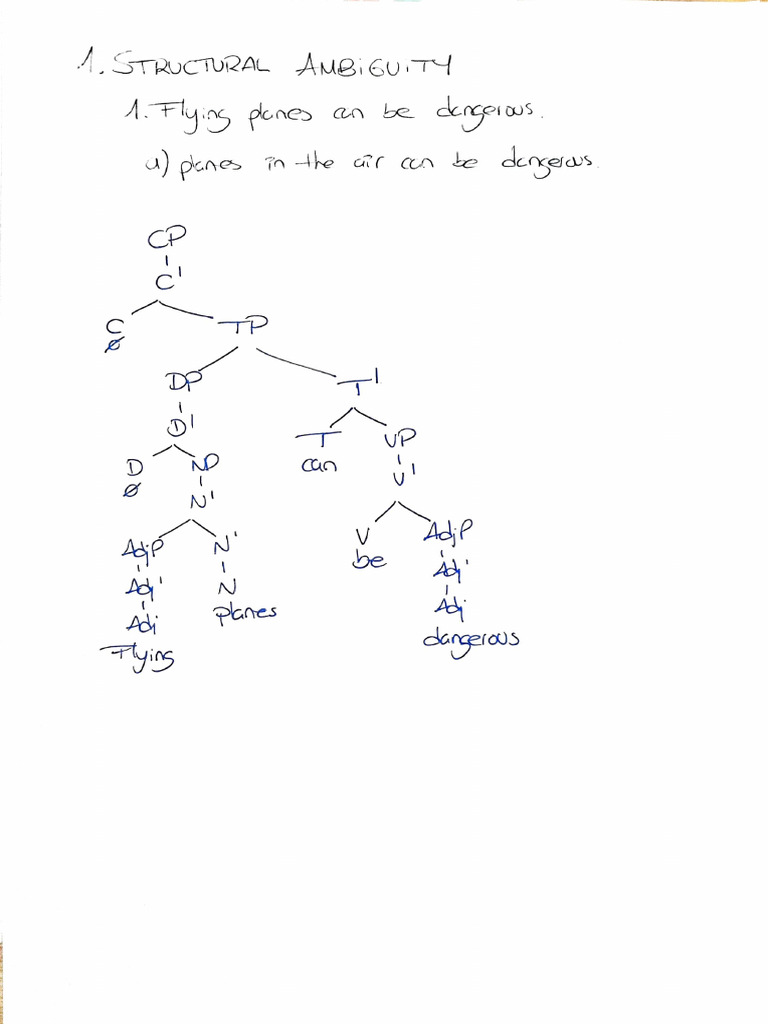 1. STRUCTURAL AMBIGUITY
1. Flying planes can be dangerous.
a) planes in the air can be dangerous.
CP
C'
C TP
∅
DP T'
D' T VP
can V'
D NP
∅ N'
AdjP N' V AdjP
be
Adj' N Adj'
planes
Adj Adj
Flying dangerous